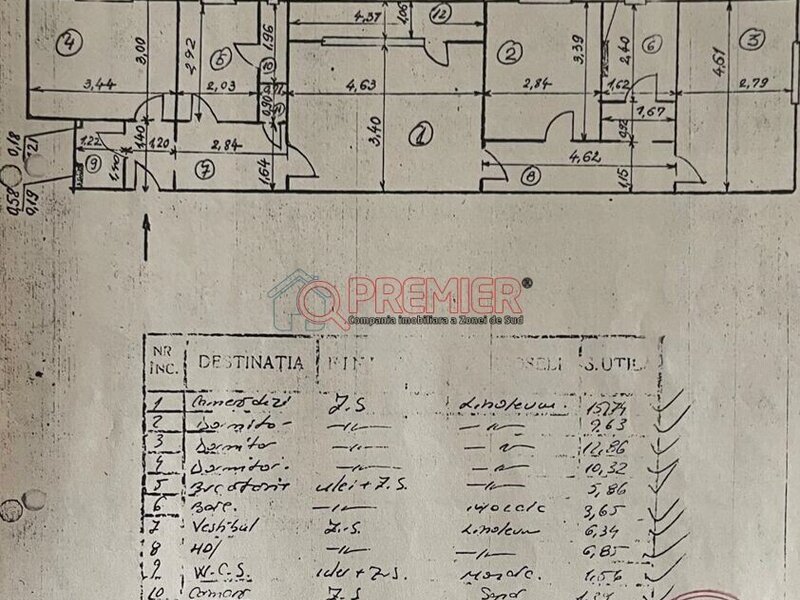 4,37
1,06
12
4
3,00
2,92
5
1,96
2
3,39
2,40
6
4,61
3
3,44
2,03
4,63
2,84
1,62
2,79
0,90
1,67
3,40
1
0,92
0,18
1,21
1,22
1,40
1,20
2,84
9
1,10
7
1,64
4,62
8
1,15
0,58
0,19
PREMIER®
Compania imobiliara a Zonei de Sud
NR INC. DESTINAȚIA FINI OSELI S.UTILA
1 Camera de zi Z.S Linoleum. 15,74
2 Dormitor -"- -"- 9,63
3 Dormitor -"- -"- 12,86
4 Dormitor. -"- -"- 10,32
5 Bucatarie ulei + Z.S. -"- 5,86
6 Baie. -"- Mozaic 3,65
7 Vestibul Z.S. Linoleum 6,34
8 Hol -"- -"- 6,85
9 W.C.S. ulei + Z.S. Mozaic. 1,56
10 Camara Z.S